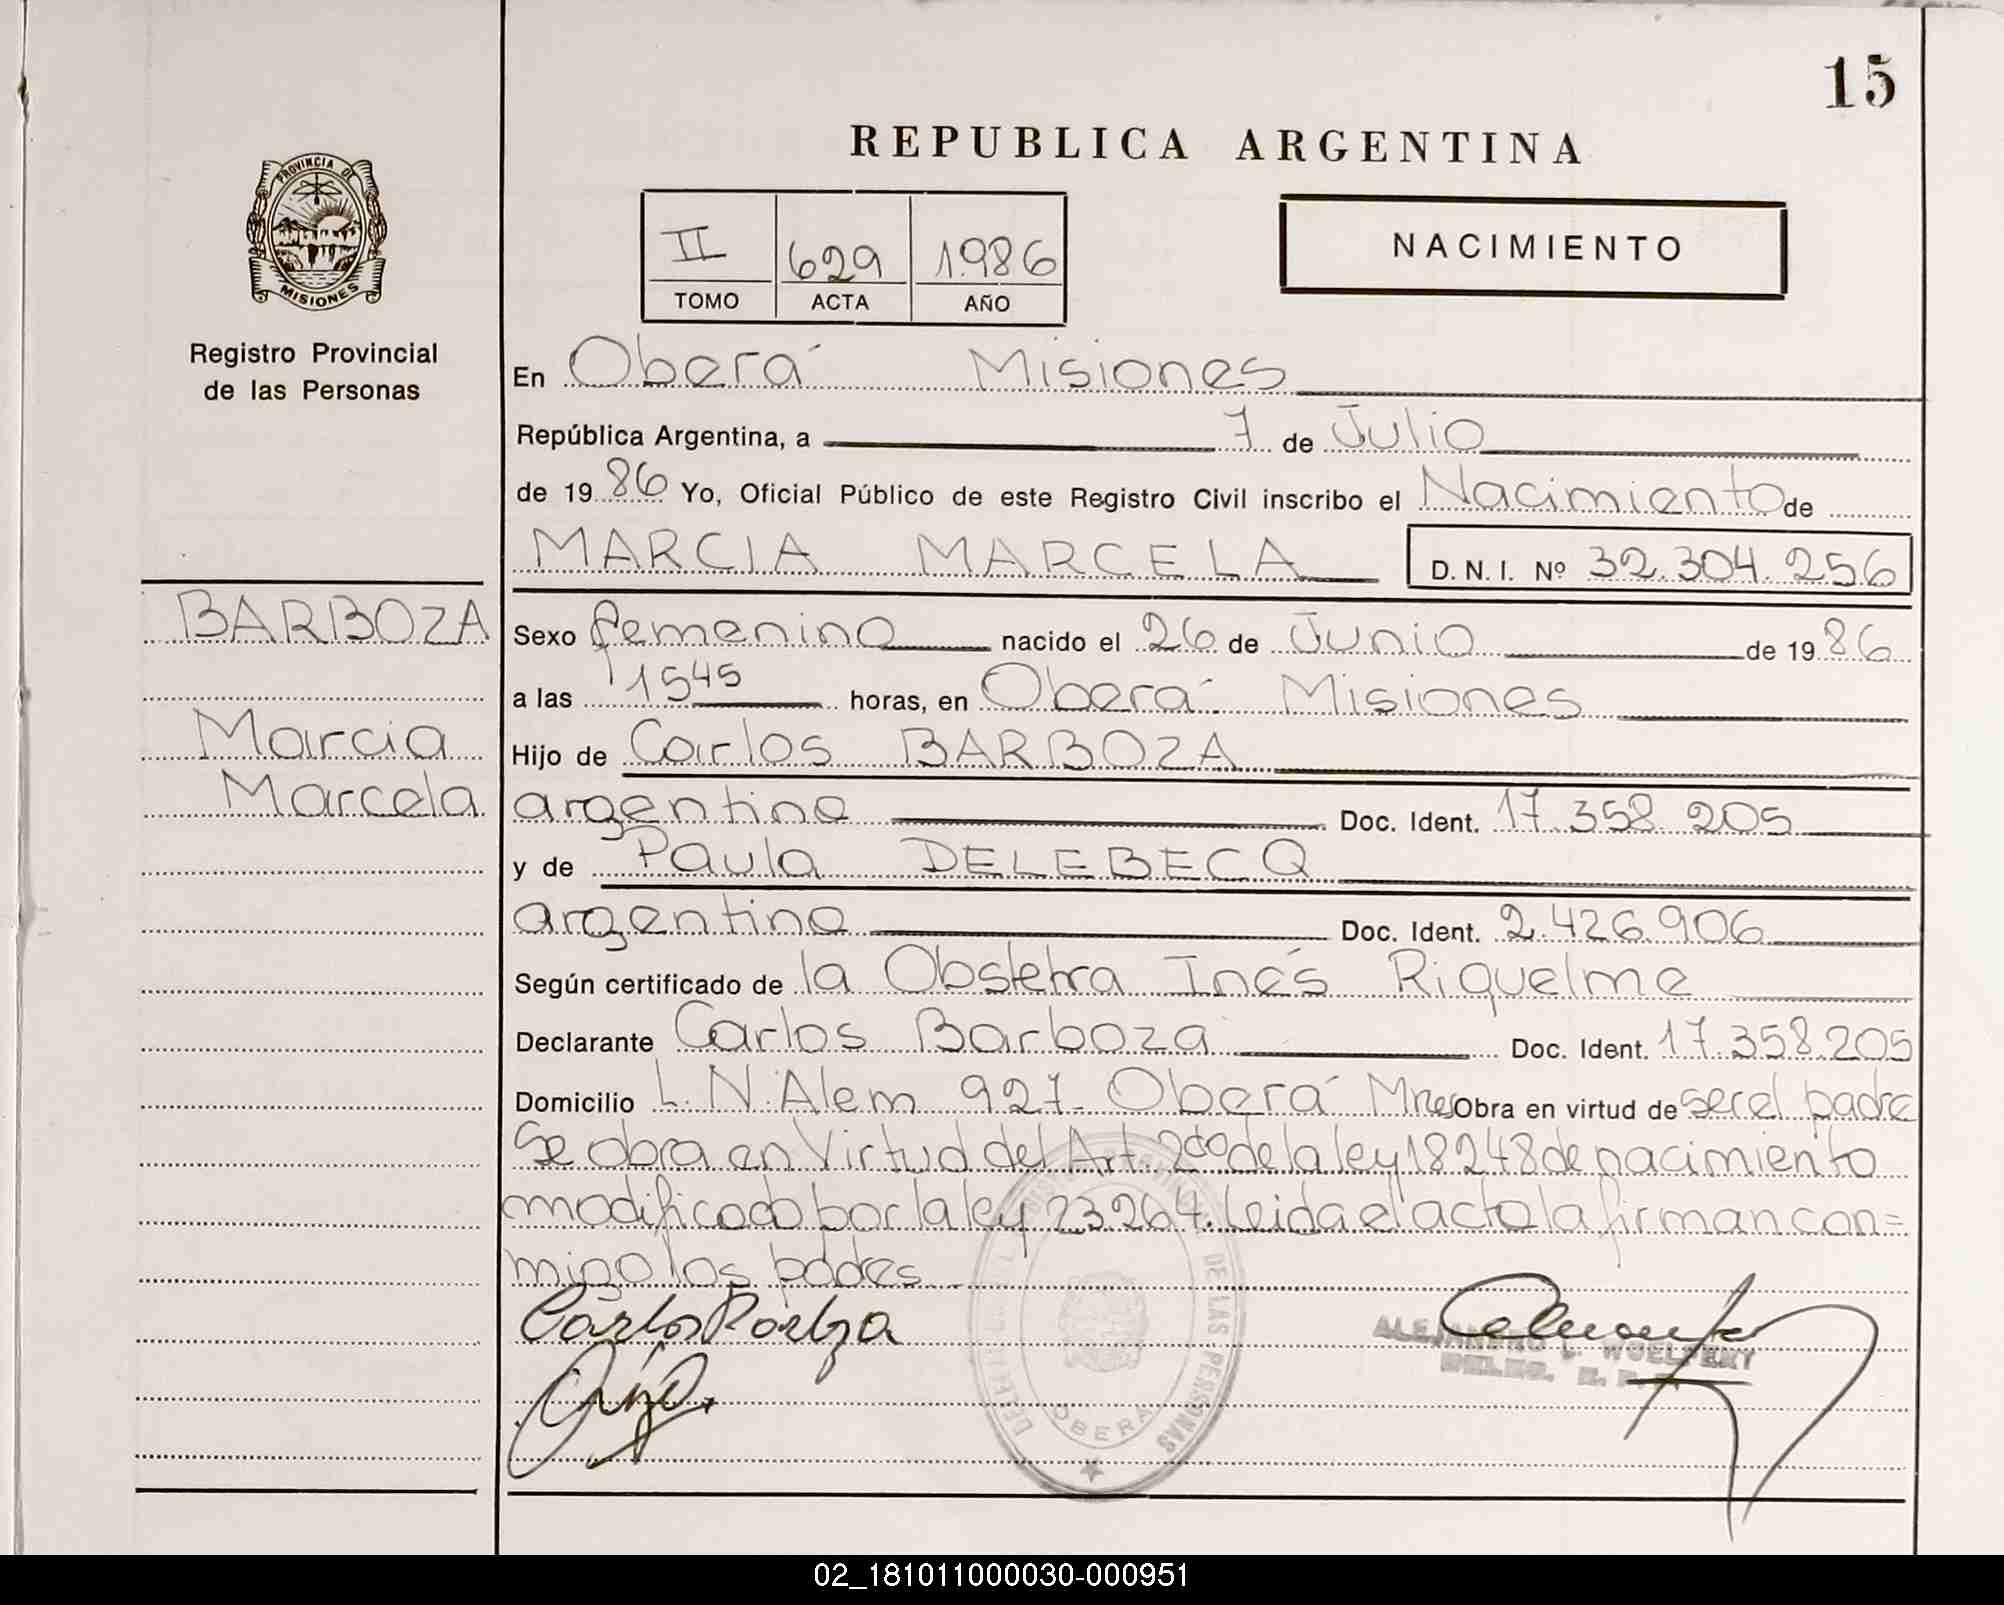 15
REPUBLICA ARGENTINA
PROVINCIA DE
MISIONES
Registro Provincial
de las Personas
II 629 1986
TOMO ACTA AÑO
NACIMIENTO
En Oberá Misiones
República Argentina, a 7 de Julio
de 1986 Yo, Oficial Público de este Registro Civil inscribo el Nacimiento de
MARCIA MARCELA D.N.I. Nº 32.304.256
BARBOZA
Marcia
Marcela
Sexo femenino nacido el 26 de Junio de 1986
a las 1545 horas, en Oberá Misiones
Hijo de Carlos BARBOZA
argentino Doc. Ident. 17.358.205
y de Paula DELEBECQ
argentina Doc. Ident. 2.426.906
Según certificado de la Obstetra Inés Riquelme
Declarante Carlos Barboza Doc. Ident. 17.358.205
Domicilio L.N.Alem 927- Oberá Mnes Obra en virtud de ser el padre
Se obra en Virtud del Art. 2do de la ley 18248 de nacimiento
modificado por la ley 23.264. Leida el acta la firman con=
migo los padres
Carlos Barboza
DE LAS PERSONAS
OBERÁ
ALEJANDRO
02_181011000030-000951